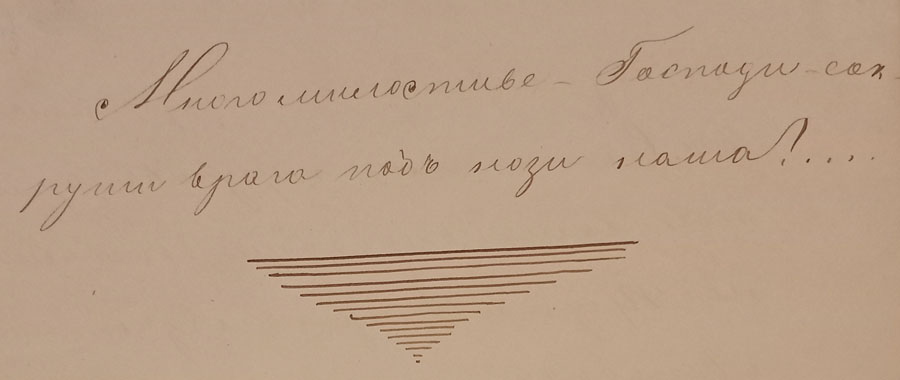 Много милостиве – Господи – сок-
руши врага подъ нози наша!....